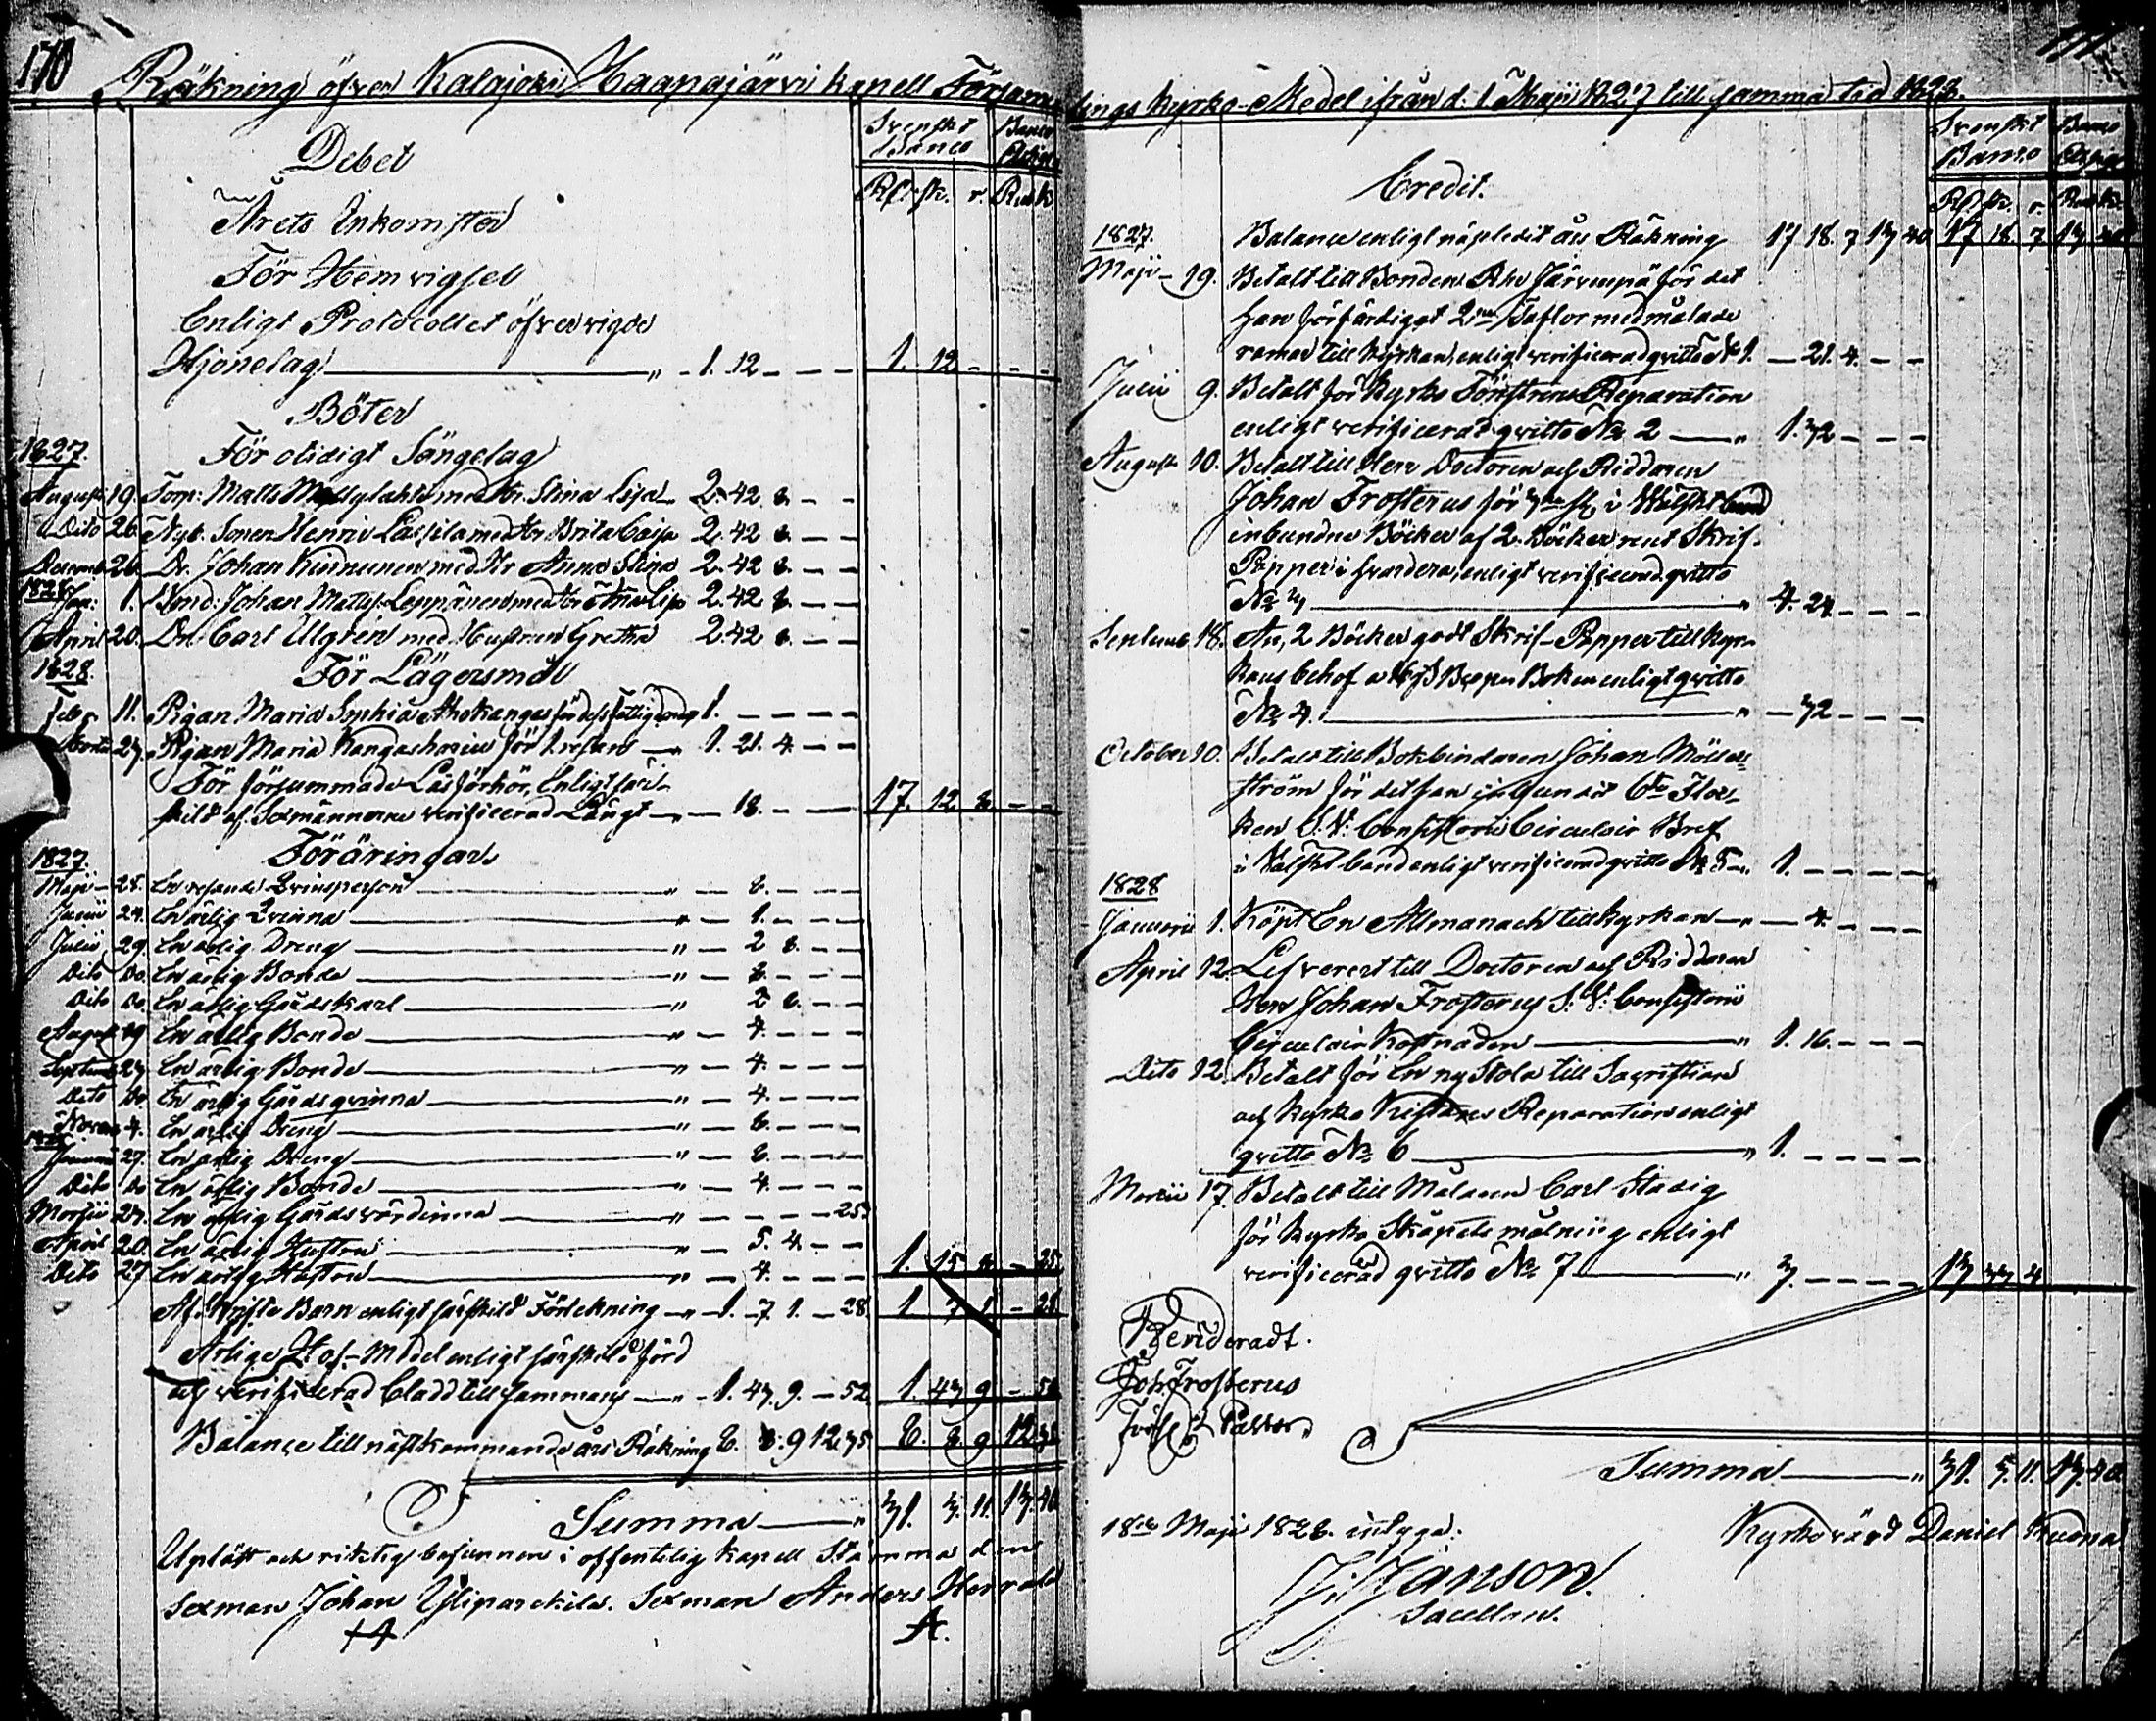 170
Räkning öfver Kalajoki Haapajärvi kapell Församlings kyrko-Medel ifrån d: 1 Maji 1827 till samma tid 1828.
Svenskt Banco
Banco
Debet
Rd. sk. r. R. k.
Årets Inkomster
För Hemvigsel
Enligt Protocollet öfver vigde
Hjonelag " - 1. 12 - - - 1. 12 - - -
Böter
1827.
För otidigt Sängelag
August 19. Torp: Matts med Hr. Stina 2. 42. 8. - -
Dito 26. Nyb. Sonen Henric med Hr Brita Caisa 2. 42 8. - -
Decemb. 26. Dr. Johan Kinnunen med Hr Anna Stina 2. 42 8. - -
1828 Jan: 1. Bond: Johan Matts: Leppänen med Hr 2. 42 8. - -
April 20. Dr. Carl Ullgren med Hustrun Gretha 2. 42 8. - -
1828.
För Lägersmål
Febr. 11. Pigan Maria Sophia Ahokangas för dess fattigdom 1. - - - -
27. Pigan Maria Kangas 1. 21. 4. - -
För försummade Läsförhör, Enligt sär-
skild af Sexmännerne verificerad Längt " - 18. - - - 17. 12 8 - -
Föräringar
1827.
Maji 28. En resande Qvinsperson " - 8. - - -
Junii 24. En ärlig Qvinna " - 1. - - -
Julii 29. En ärlig Dreng " - 2 8. - -
Dito Do. En ärlig Bonde " - 8. - - -
Dito Do. En ärlig Gårdskarl " 2 8. - -
August 19 En ärlig Bonde " - 4. - - -
Septemb. 23. En ärlig Bonde " - 4. - - -
Dito Do. En ärlig Gårdsqvinna " - 4. - - -
Novem. 4. En ärlig Dreng " - 8. - - -
Januari 27. En ärlig Dreng " - 8. - - -
Dito Do En ärlig Bonde " - 4. - - -
Martii 23. En ärlig Gårdsvärdinna " - - - - 25.
April 20. En ärlig Hustru " - 5. 4. - -
Dito 27 En ärlig Hustru " - 4. - - - 1. 15 8 - 25
Af Krista Barn enligt särskild Förtekning " - 1. 7 1. - 28. 1 7 1 - 28
Årlige Hof-Medel enligt särskild förd
och verificerad Cladd tillsammans " - 1. 43. 9. - 52 1. 43 9 - 52
Balance till nästkommande års Räkning 8. 8. 9 12. 35 8. 8. 9 12 35
Summa " 31. 3. 11. 13. 40
Upläst och riktig befunnen i offentelig kapell Stämma den
Sexman Johan Yliparekila. Sexman Anders Herrala
171
Svenskt Banco
Banco
Credit.
Rd sk. r. R. k.
1827.
Balance enligt näspledit års Räkning 17 18. 7 13 40 17 18 7 13 40
Maji - 19. Betalt till Bonden Järvenpä för det
han förfärdigat 2ne Taflor med målade
ramar till kyrkan, enligt verificerad qvitto No 1. - 21. 4. - -
Julii 9. Betalt för kyrko Fönstrens Reparation
enligt verificerad qvitto No 2 " 1. 32 - - -
August 10. Betalt till Herr Doctoren och Riddaren
Johan Frosterus för 3ne st, i Wälskt band
inbundne Böcker af 2 Böcker rent Skrif-
Papper i hvardera, enligt verificerad qvitto
No 3 " 4. 24 - - -
Septemb 18. 2 Böcker godt Skrif-Papper till kyr-
kans behof a 16 sk. Boken enligt qvitto
No 4. " - 32 - - -
October 10. Betalt till Bokbindaren Johan Möller-
ström för det han inbundit 6 
ken S: V: Consistorii Circulair Bref
i Valskt band enligt verificerad qvitto No 5 " 1. - - - -
1828
Januarii 1. Köpt En Allmanach till kyrkan " - 4. - - -
April 12. Lefvererat till Doctoren och Riddaren
Herr Johan Frosterus S: V: Consistorii
Circulair Kostnaden " 1. 16. - - -
Dito 12. Betalt för En ny Stola till Sacristian
och kyrko Kistans Reparation enligt
qvitto No 6 " 1. - - - -
Martii 17. Betalt till Målaren Carl Stadig
för kyrko Skåpets målning enligt
verificerad qvitto No 7 " 3. - - - - 13 33 4
Revideradt.
Joh. Frosterus
Pastor
Summa " 31. 3. 11. 13. 40.
18de Maji 1828. intyga:
Kyrkovärd Daniel Kuona
J. Janson.
Sacellan.